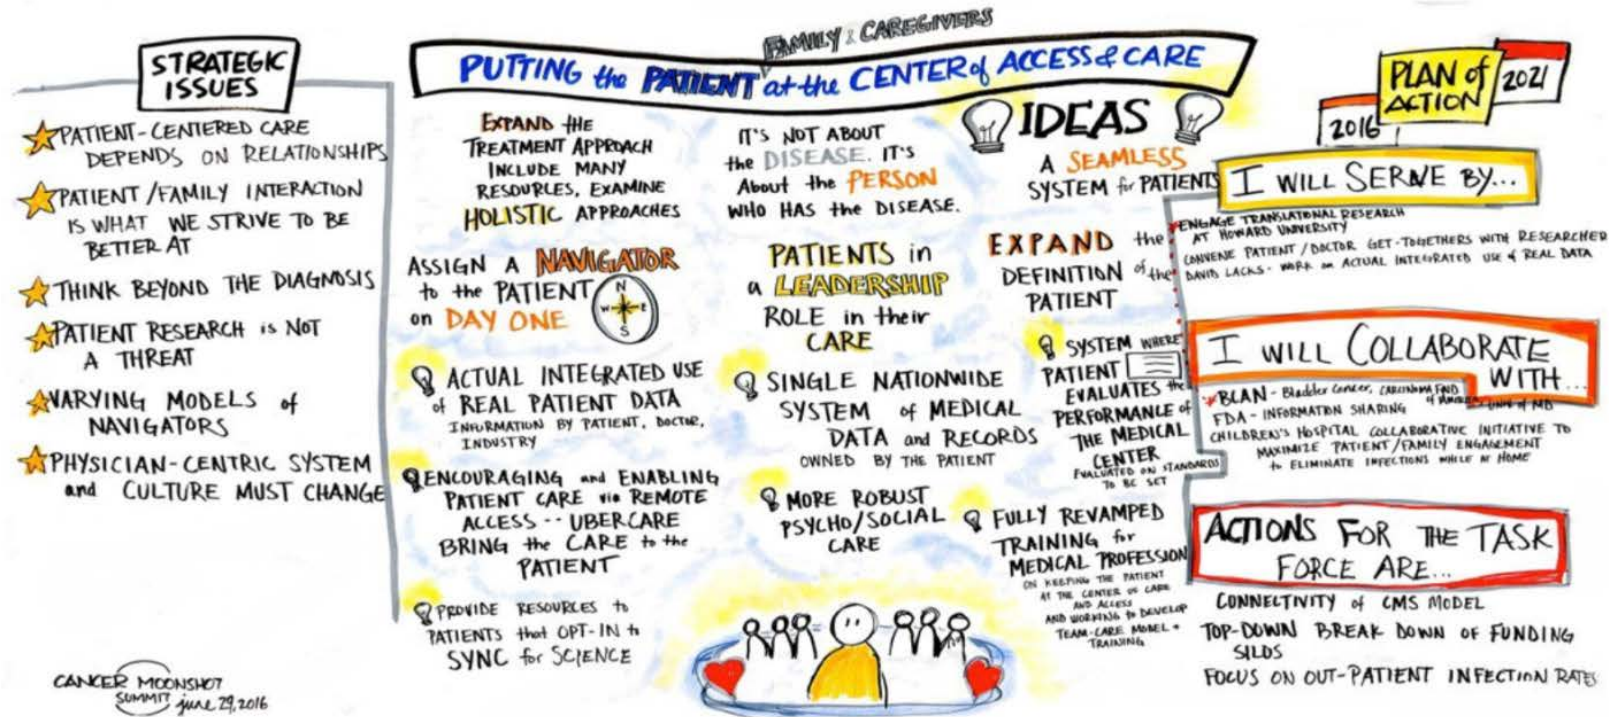 STRATEGIC
ISSUES
PATIENT-CENTERED CARE
DEPENDS ON RELATIONSHIPS
PATIENT/FAMILY INTERACTION
IS WHAT WE STRIVE TO BE
BETTER AT
THINK BEYOND THE DIAGNOSIS
PATIENT RESEARCH is NOT
A THREAT
VARYING MODELS of
NAVIGATORS
PHYSICIAN-CENTRIC SYSTEM
and CULTURE MUST CHANGE
CANCER MOONSHOT
SUMMIT june 29, 2016
FAMILY & CAREGIVERS
PUTTING the PATIENT at the CENTER of ACCESS & CARE
EXPAND the
TREATMENT APPROACH
INCLUDE MANY
RESOURCES, EXAMINE
HOLISTIC APPROACHES
ASSIGN A NAVIGATOR
to the PATIENT
on DAY ONE
N
W E
S
ACTUAL INTEGRATED USE
of REAL PATIENT DATA
INFORMATION BY PATIENT, DOCTOR,
INDUSTRY
ENCOURAGING and ENABLING
PATIENT CARE via REMOTE
ACCESS -- UBERCARE
BRING the CARE to the
PATIENT
PROVIDE RESOURCES to
PATIENTS that OPT-IN to
SYNC for SCIENCE
IT'S NOT ABOUT
the DISEASE. IT'S
About the PERSON
WHO HAS the DISEASE.
PATIENTS in
a LEADERSHIP
ROLE in their
CARE
SINGLE NATIONWIDE
SYSTEM of MEDICAL
DATA and RECORDS
OWNED BY THE PATIENT
MORE ROBUST
PSYCHO/SOCIAL
CARE
IDEAS
A SEAMLESS
SYSTEM for PATIENTS
EXPAND the
DEFINITION of the
PATIENT
SYSTEM WHERE
PATIENT
EVALUATES the
PERFORMANCE of
THE MEDICAL
CENTER
EVALUATED ON STANDARDS
TO BE SET
FULLY REVAMPED
TRAINING for
MEDICAL PROFESSION
ON KEEPING THE PATIENT
AT THE CENTER OF CARE
AND ACCESS
AND WORKING to DEVELOP
TEAM-CARE MODEL +
TRAINING
PLAN of
ACTION
2021
2016
I WILL SERVE BY...
ENGAGE TRANSLATIONAL RESEARCH
AT HOWARD UNIVERSITY
CONVENE PATIENT/DOCTOR GET-TOGETHERS WITH RESEARCHER
DAVID LACKS - WORK on ACTUAL INTEGRATED USE of REAL DATA
I WILL COLLABORATE
WITH...
BLAN - Bladder Cancer, CARCINOMA FND
of AMERICA, UNIV of MD
FDA - INFORMATION SHARING
CHILDREN'S HOSPITAL COLLABORATIVE INITIATIVE TO
MAXIMIZE PATIENT/FAMILY ENGAGEMENT
to ELIMINATE INFECTIONS WHILE AT HOME
ACTIONS FOR THE TASK
FORCE ARE...
CONNECTIVITY of CMS MODEL
TOP-DOWN BREAK DOWN OF FUNDING
SILOS
FOCUS ON OUT-PATIENT INFECTION RATES